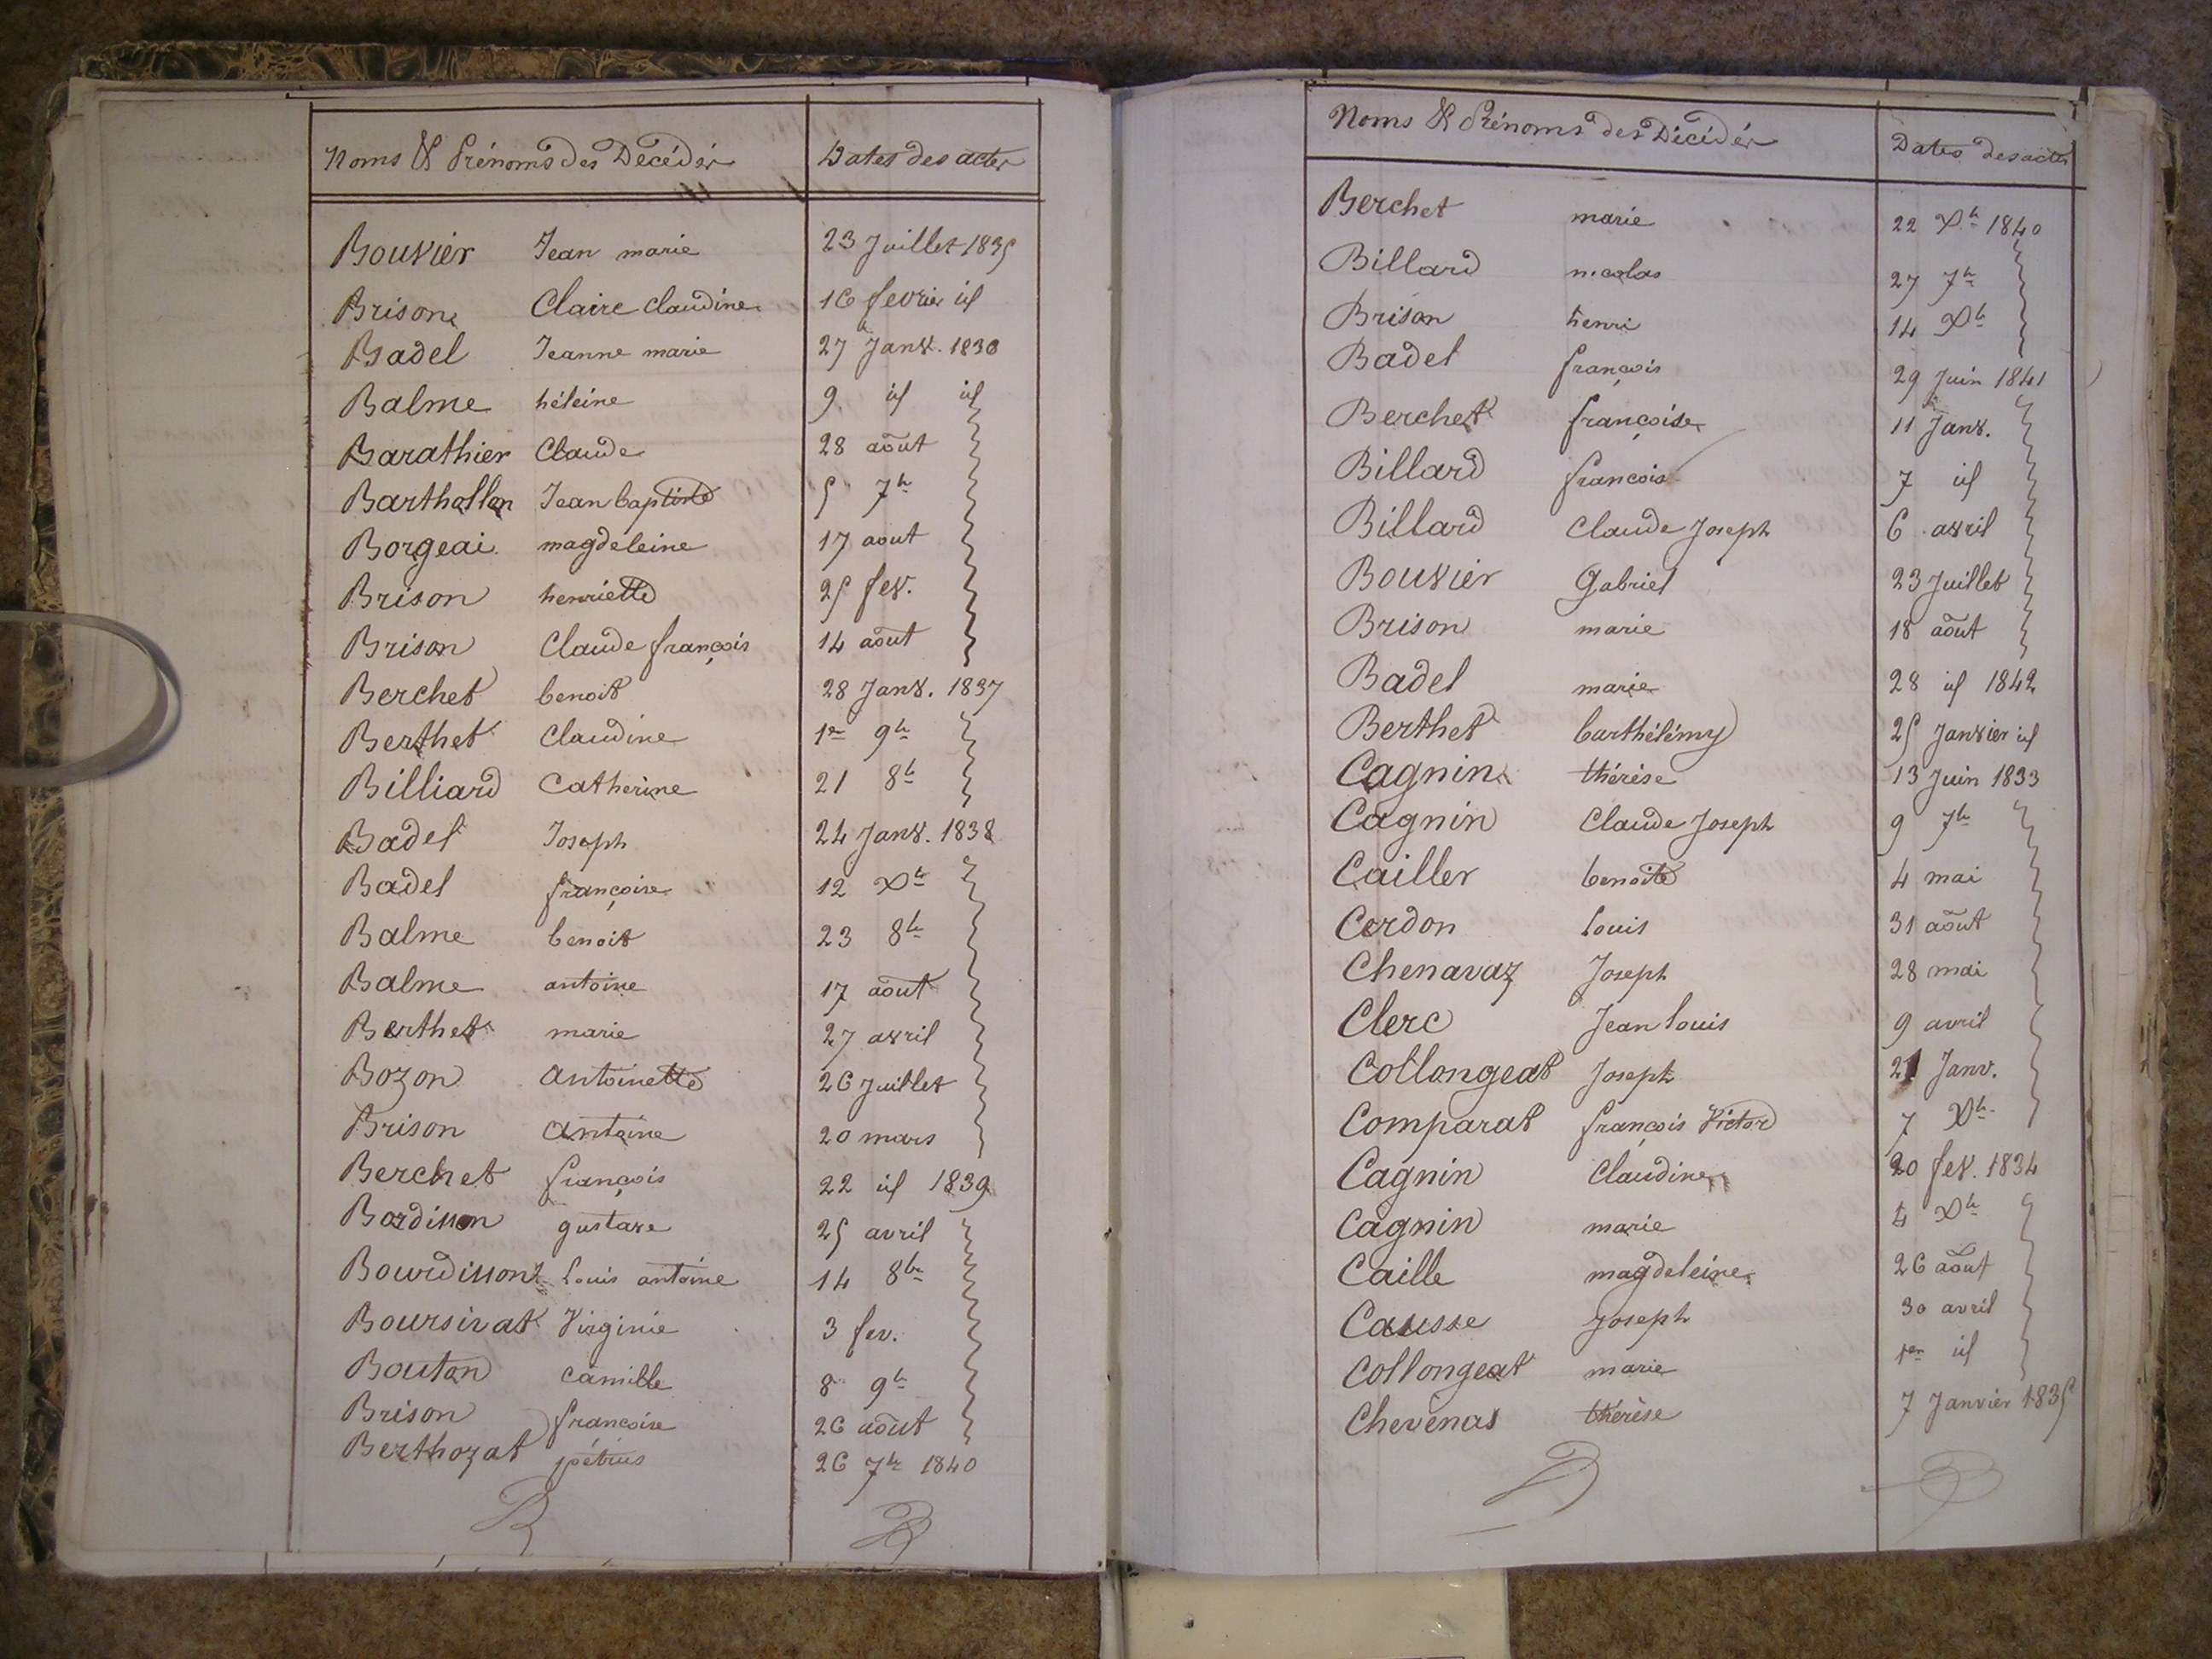 Noms & Prénoms des Décédés Dates des actes
Bouvier Jean marie 23 Juillet 1835
Brison Claire Claudine 16 fevrier id
Badel Jeanne marie 27 Janv. 1836
Balme héleine 9 id id
Barathier Claude 28 août
Barthollon Jean baptiste 5 7bre
Borgeai magdeleine 17 aout
Brison henriette 25 fev.
Brison Claude françois 14 août
Berchet benoit 28 Janv. 1837
Berthet Claudine 1er 9bre
Billiard Catherine 21 8bre
Badel Joseph 24 Janv. 1838
Badel françoise 12 Xbre
Balme benoit 23 8bre
Balme antoine 17 août
Berthet marie 27 avril
Bozon Antoinette 26 Juillet
Brison Antoine 20 mars
Berchet françois 22 id 1839
Bordisson gustave 25 avril
Bourdisson Louis antoine 14 8bre
Boursivat Virginie 3 fev.
Bouton camille 8 9bre
Brison françoise 26 août
Berthozat pétrus 26 7bre 1840
Noms & Prénoms des Décédés Dates des actes
Berchet marie 22 Xbre 1840
Billard nicolas 27 7bre
Brison henri 14 Xbre
Badel françois 29 Juin 1841
Berchet françoise 11 Janv.
Billard francois 7 id
Billard Claude Joseph 6 avril
Bouvier Gabriel 23 Juillet
Brison marie 18 août
Badel marie 28 id 1842
Berthet barthélémy 25 Janvier id
Cagnin thérèse 13 Juin 1833
Cagnin Claude Joseph 9 7bre
Cailler benoite 4 mai
Cerdon Louis 31 août
Chenavaz Joseph 28 mai
Clerc Jean Louis 9 avril
Collongeat Joseph 21 Janv.
Comparat françois Victor 7 Xbre
Cagnin Claudine 20 fev. 1834
Cagnin marie 4 Xbre
Caille magdeleine 26 août
Causse Joseph 30 avril
Collongeat marie 1er id
Chevenas thérèse 7 Janvier 1835